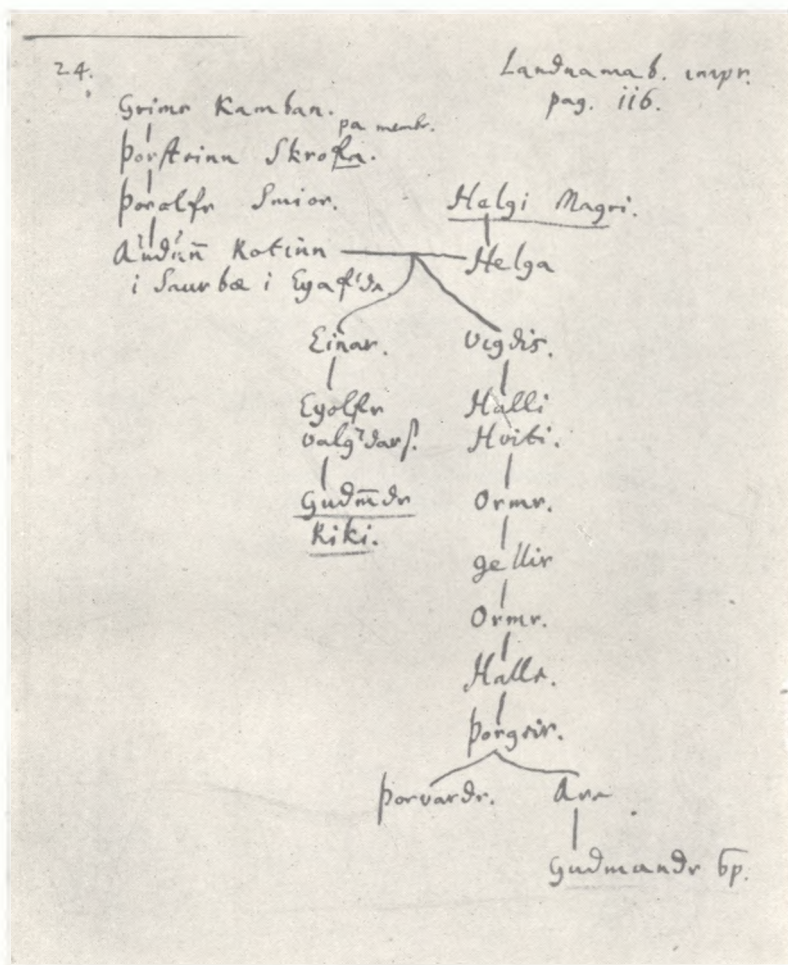 24.
Landnamab. impr.
pag. 116.
Grimr Kamban.
pa membr.
Þorsteinn Skrofa.
Þorolfr Smior.
Helgi Magri.
Audun Rotinn
Helga
i Saurbæ i Eyaf'de
Einar.
Vigdis.
Eyolfr
Halli
Valg'dars.
Hviti.
Gudm̄dr
Ormr.
Riki.
Gellir
Ormr.
Halls.
Þorgeir.
Þorvardr.
Are
Gudmandr bp.